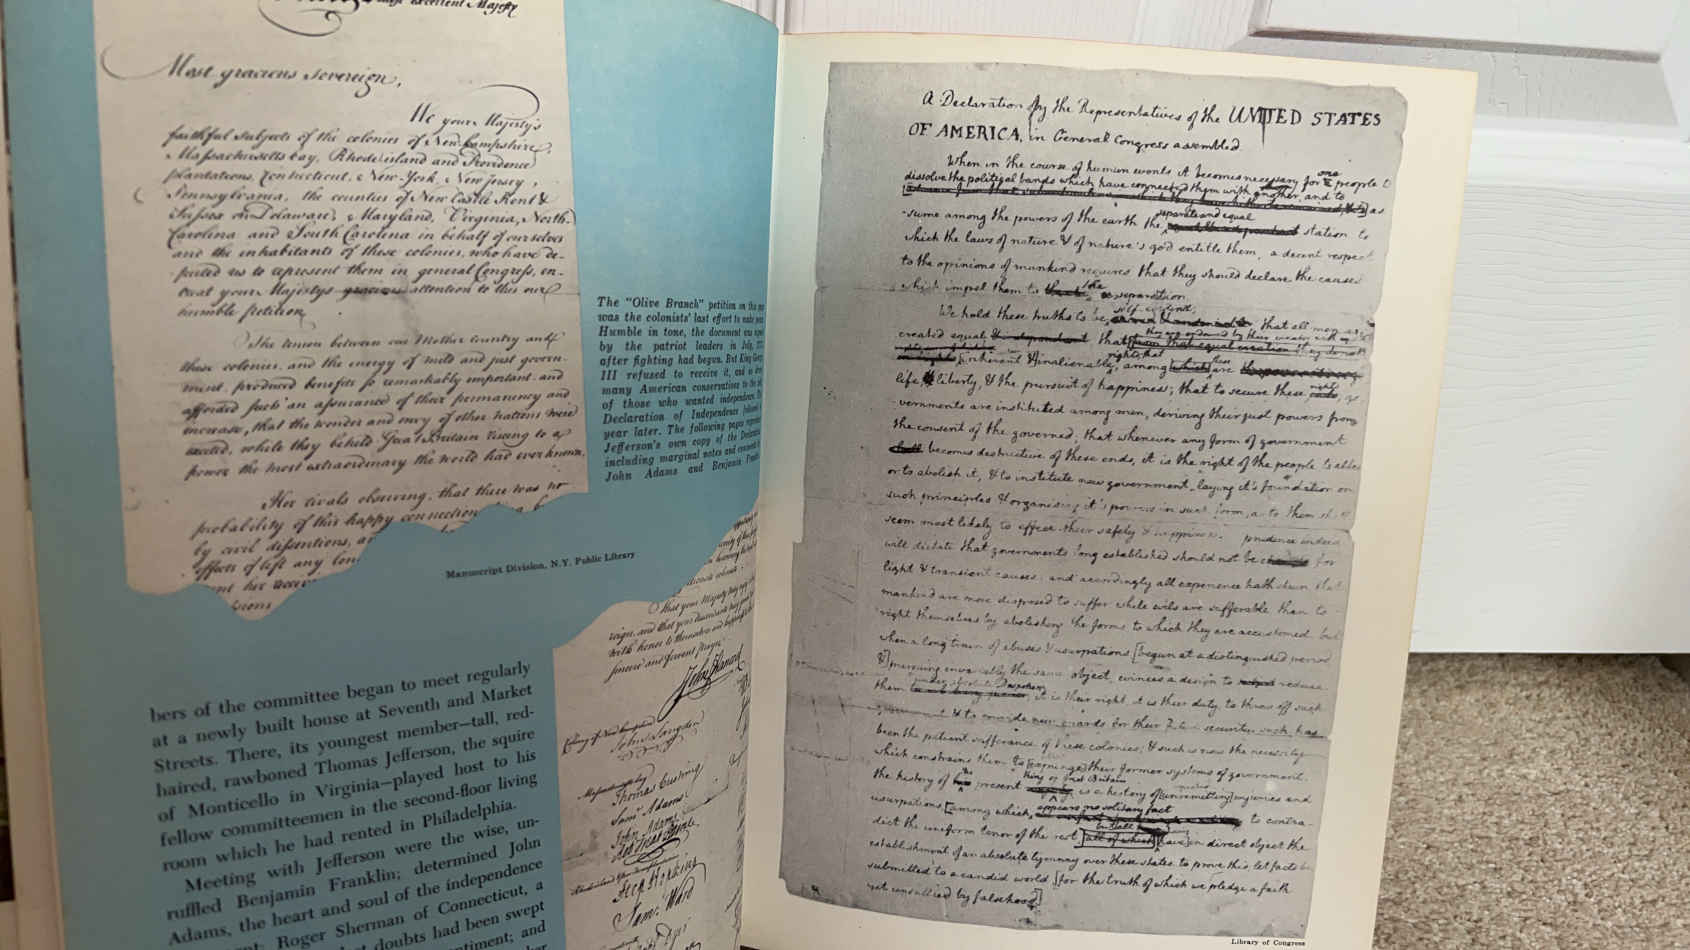 most excellent Majesty
Most gracious sovereign,
We your Majesty's
faithful subjects of the colonies of New-hampshire,
Massachusetts-bay, Rhode island and Providence
plantations, Connecticut, New-York, New Jersey,
Pennsylvania, the counties of New Castle Kent &
Sussex on Delaware, Maryland, Virginia, North-
Carolina and South Carolina in behalf of ourselves
and the inhabitants of these colonies, who have de-
puted us to represent them in general Congress, en-
treat your Majestys gracious attention to this our
humble petition.
The union between our Mother Country and
these colonies, and the energy of mild and just govern-
ment, produced benefits so remarkably important, and
afforded such an assurance of their permanency and
increase, that the wonder and envy of other nations were
excited, while they beheld Great Britain riseing to a
power the most extraordinary the world had ever known.
Her rivals observing, that there was no
probability of this happy connection
by civil dissentions, a
effects if left any lon
sions
The "Olive Branch" petition on this
was the colonists' last effort to make
Humble in tone, the document was
by the patriot leaders in July,
after fighting had begun. But King
III refused to receive it, and
many American conservatives to the
of those who wanted independence.
Declaration of Independence
year later. The following pages
Jefferson's own copy of the
including marginal notes and
John Adams and Benjamin
Manuscript Division, N.Y. Public Library
that your Majesty may
reign, and that your descendants may
with honor to themselves and
sincere and fervent prayer.
John Hancock
Colony of New hampshire
John Langdon
Massachusetts
Thomas Cushing
Saml Adams
John Adams
Step Hopkins
Sam: Ward
bers of the committee began to meet regularly
at a newly built house at Seventh and Market
Streets. There, its youngest member—tall, red-
haired, rawboned Thomas Jefferson, the squire
of Monticello in Virginia—played host to his
fellow committeemen in the second-floor living
room which he had rented in Philadelphia.
Meeting with Jefferson were the wise, un-
ruffled Benjamin Franklin; determined John
Adams, the heart and soul of the independence
Roger Sherman of Connecticut, a
doubts had been swept
and
A Declaration by the Representatives of the UNITED STATES
OF AMERICA, in General Congress assembled.
When in the course of human events it becomes necessary for one people to
dissolve the political bands which have connected them with another, and to
as
-sume among the powers of the earth the separate and equal station to
which the laws of nature & of nature's god entitle them, a decent respect
to the opinions of mankind requires that they should declare the causes
which impel them to the separation.
We hold these truths to be self-evident; that all men are
created equal that
inherent & inalienable rights; that among these are
life, liberty, & the pursuit of happiness; that to secure these rights, go-
vernments are instituted among men, deriving their just powers from
the consent of the governed; that whenever any form of government
becomes destructive of these ends, it is the right of the people to alter
or to abolish it, & to institute new government, laying it's foundation on
such principles & organising it's powers in such form, as to them shall
seem most likely to effect their safety & happiness. prudence indeed
will dictate that governments long established should not be changed for
light & transient causes: and accordingly all experience hath shewn that
mankind are more disposed to suffer while evils are sufferable, than to
right themselves by abolishing the forms to which they are accustomed. but
when a long train of abuses & usurpations [begun at a distinguished period
&] pursuing invariably the same object, evinces a design to reduce
them under absolute Despotism, it is their right, it is their duty, to throw off such
government & to provide new guards for their future security. such has
been the patient sufferance of these colonies; & such is now the necessity
which constrains them to [expunge] their former systems of government.
the history of the present king of Great Britain is a history of [unremitting] injuries and
usurpations, [among which, appears no solitary fact to contra-
dict the uniform tenor of the rest, [all of which] have in direct object the
establishment of an absolute tyranny over these states. to prove this, let facts be
submitted to a candid world, [for the truth of which we pledge a faith
yet unsullied by falsehood]
Library of Congress